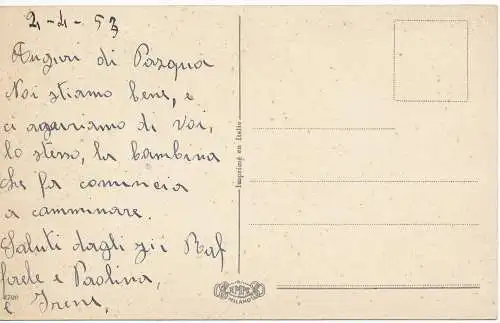 2-4-53
Auguri di Pasqua
Noi stiamo bene, e
ci auguriamo di voi,
lo stesso, la bambina
che fa comincia
a camminare.
Saluti dagli zii Raf
faele e Paolina,
e Irene,
Imprimé en Italie
MILANO